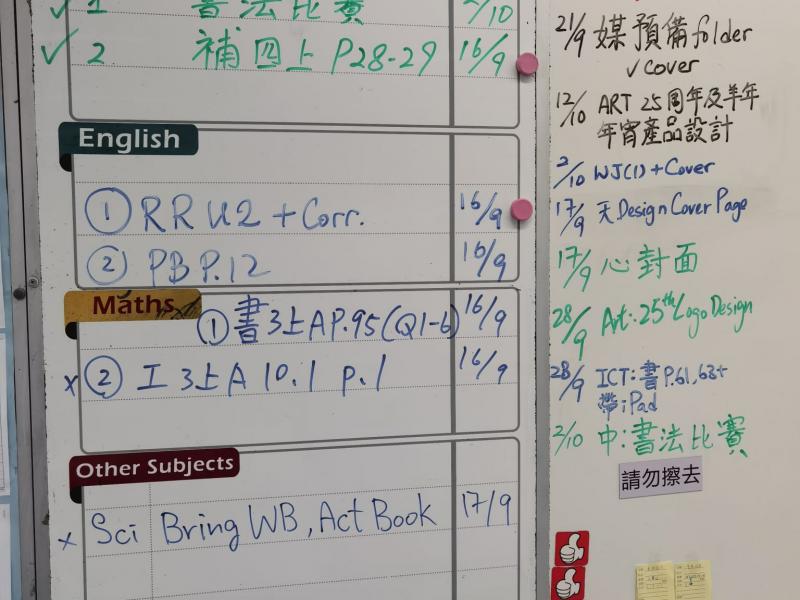 ✓ 1 書法比賽 2/10
✓ 2 補四上 P28-29 16/9
English
① RR U2 + Corr. 16/9
② PB P.12 16/9
Maths
① 書3上A P.95 (Q1-6) 16/9
x ② 工 3上A 10.1 p.1 16/9
Other Subjects
x Sci Bring WB, Act Book 17/9
21/9 媒預備folder
✓cover
12/10 ART 25周年及羊年
年宵產品設計
2/10 WJ(1)+Cover
17/9 天Design Cover Page
17/9 心封面
28/9 Art: 25th Logo Design
28/9 ICT: 書P.61,63+
帶iPad
2/10 中:書法比賽
請勿擦去